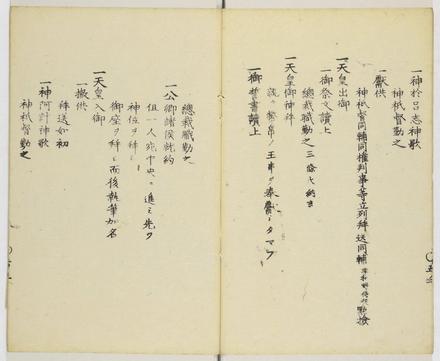 一神於呂志神歌
神祇督勤之
一獻供
神祇督同輔同權判事等立列拜送同輔
點撿
一天皇出御
一御祭文讀上
總裁職勤之
一天皇御神拜
一御誓書讀上
總裁職勤之
一公卿諸侯就約
但一人宛中央ニ進ミ先ツ
神位ヲ拜シ
御座ヲ拜シ而後執筆加名
一天皇入御
一撤供
拜送如初
一神阿計神歌
神祇督勤之